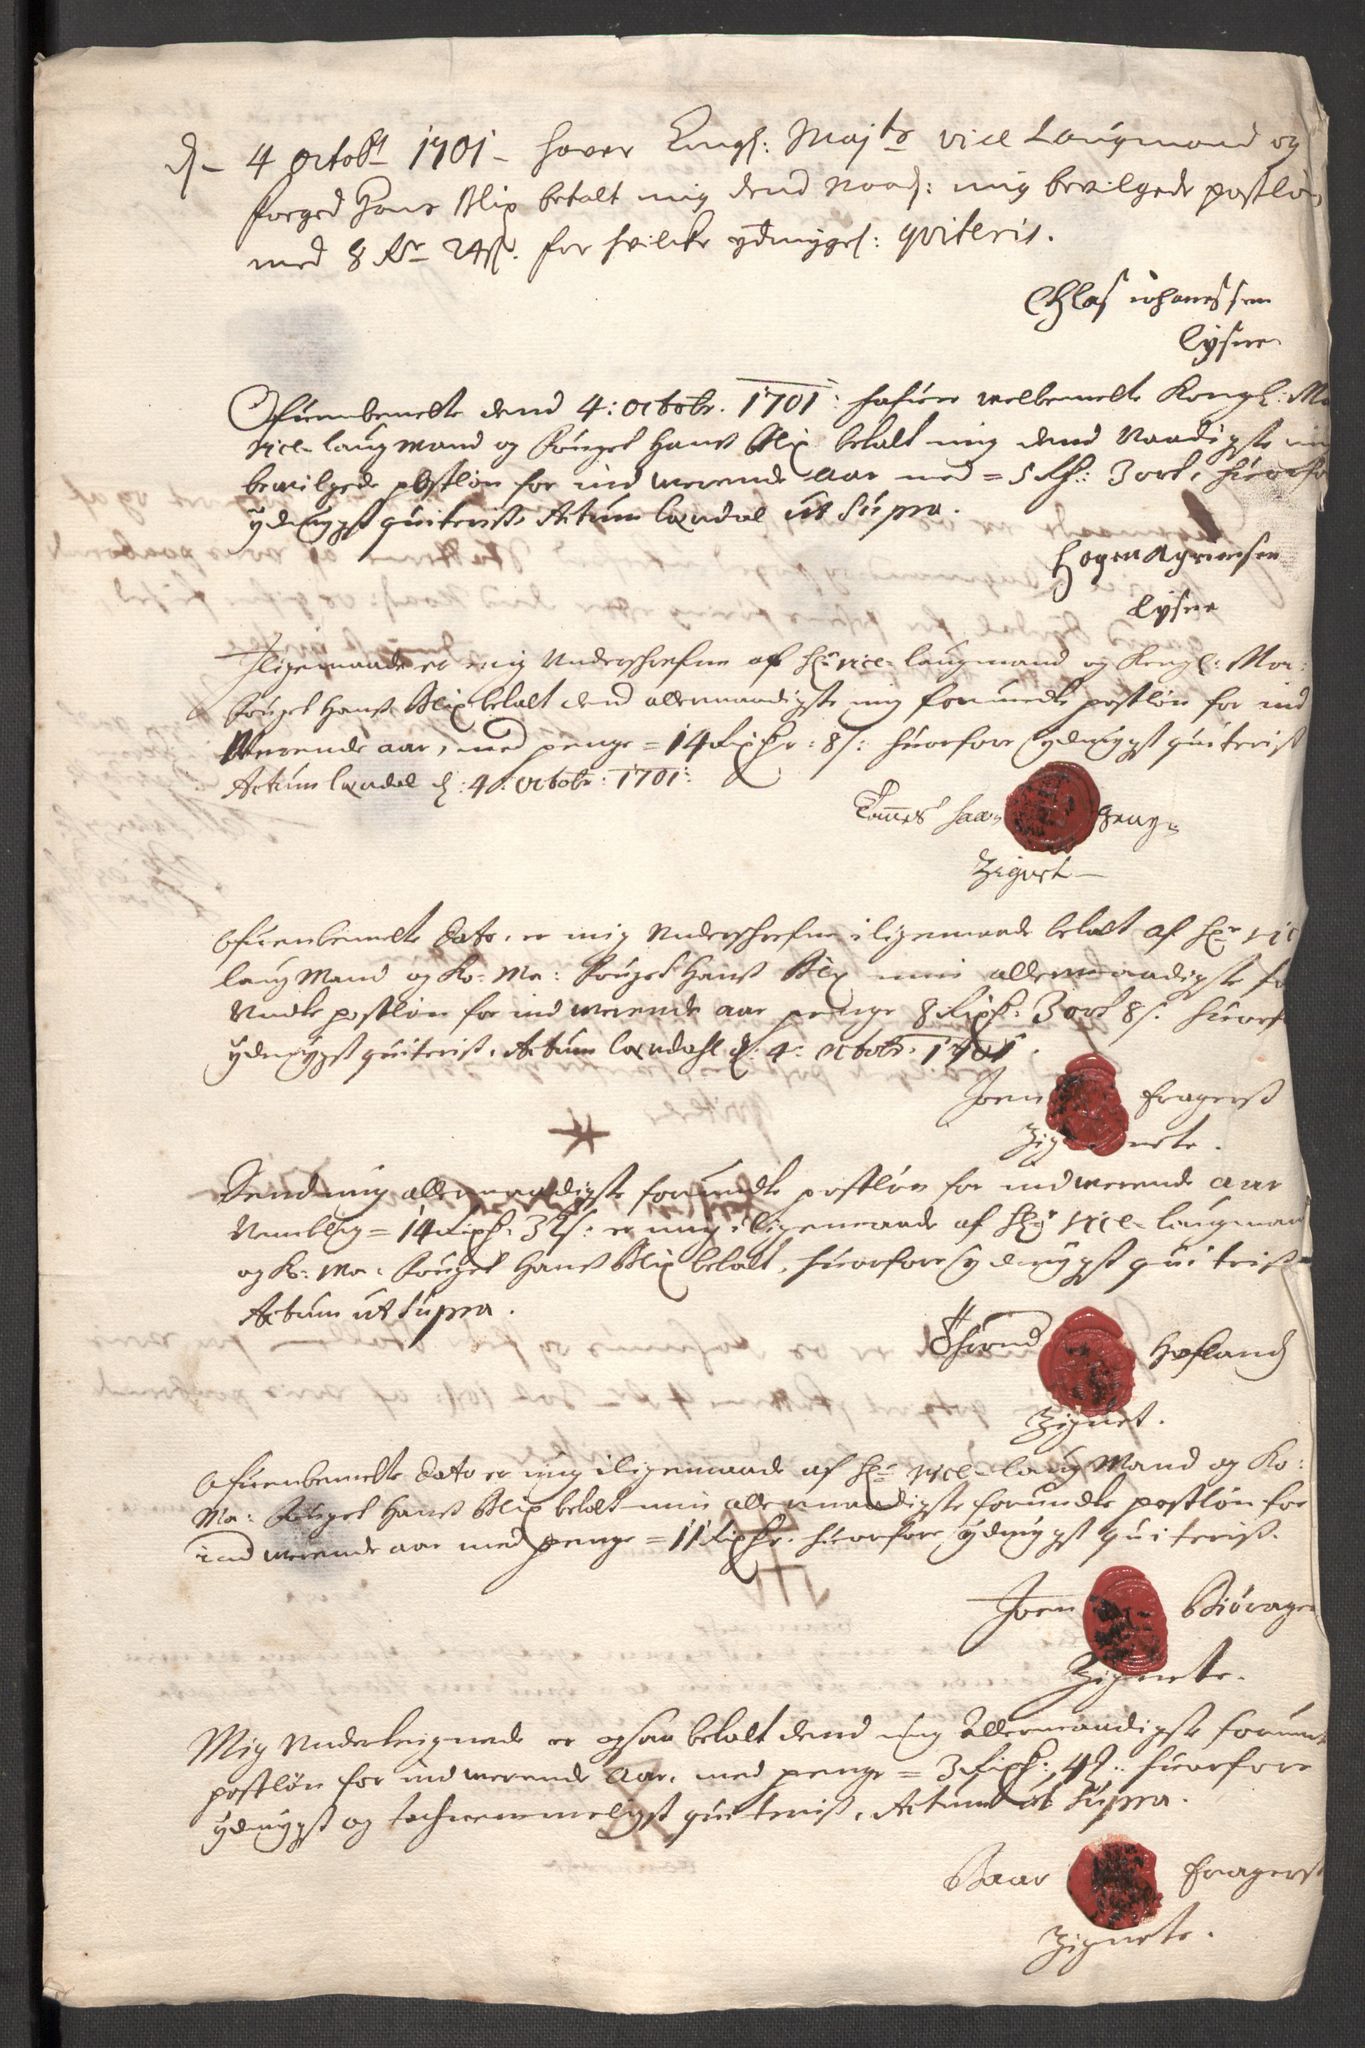 d. 4 octobr 1701 haver Kongl: Majts vice Laugmand og
foged Hans Blix betalt mig dend Naad: mig bevilgede postløn
med 8 Rdr 24 s. for hvilke ydmygel: qviteris.
Ohlas iohanessen
Lysne
Ofuenbemelte dend 4: octobr. 1701: hafuer velbemelte Kongl: Ma
vice laugmand og Fouget Hans Blix betalt mig dend Naadigste
bevilgede postløn for indwerende aar med = 5 Rd: 3 ort, huorfo
ydmygst quiterist. Actum Laxdal ut supra.
Lysne
Jligemaade er mig Underschrefne af Hr vice laugmand og Kongl: Ma:
Fouget Hans Blix betalt dend allernaadigste mig forundte postløn for ind
Werende aar, med penge = 14 Rixdr: 8 s: huorfore ydmygst quiterist
Actum Laxdal d: 4: octobr: 1701:
Zignet
Ofuenbemelte dato, er mig Underschrefne iligemaade betalt af Hr vic
laugMand og Ko: Ma: Fouget Hans Blix min allernaadigste fo
Undte postløn for indwerende aar penge 8 Rixd: 3 ort 8 s. huorf
ydmygst quiterist, Actum Laxdahl d: 4: octobr. 1701.
Joen Eragerst
Zignete.
Dend mig allernaadigste forundte postløn for indwerende aar
Nemblig = 14 Rixd: 32 s: er mig iligemaade af Hr vice laugmand
og Ko: Ma: Fouget Hans Blix betalt, huorfore ydmygst quiterist
Actum ut supra.
Hofland
Zignet.
Ofuenbemelte dato er mig iligemaade af Hr vice laugMand og Ko:
Ma: Fouget Hans Blix betalt min allernaadigste forundte postløn for
indwerende aar med penge = 11 Rixdr. huorfore ydmygst quiterist.
Joen Biørage
Zignete.
Mig Underteignede er ogsaa betalt dend mig Allernaadigste forunt
postløn for indwerende Aar, med penge = 3 Rixd:, 4 s: huorfore
ydmygst og tachnemmeligst quiterist, Actum ut supra.
Baar Eragerst
Zignete.